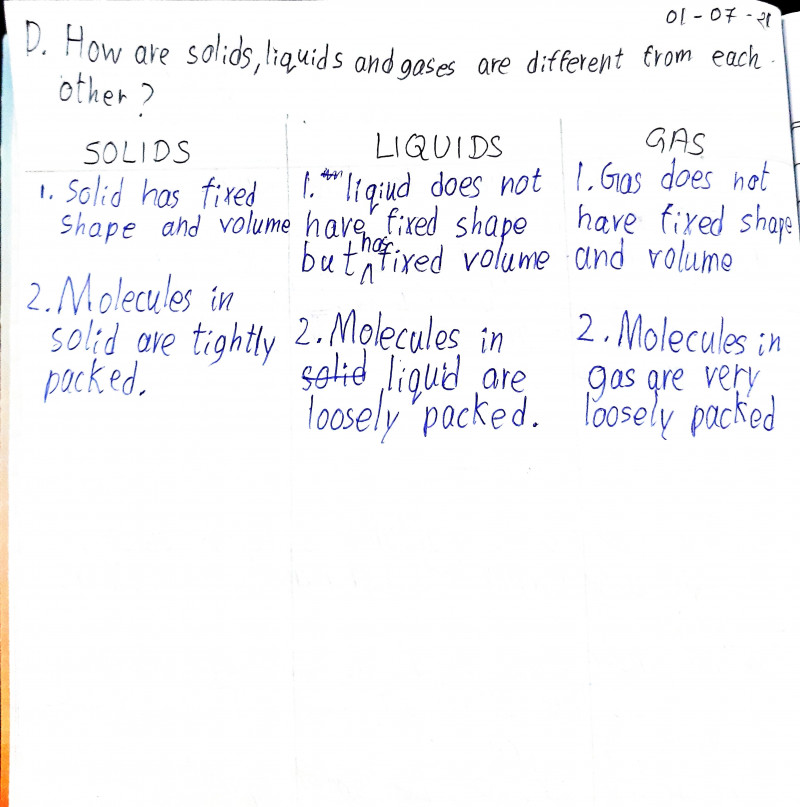 01-07-21
D. How are solids, liquids and gases are different from each
other?
SOLIDS
1. Solid has fixed
shape and volume
2. Molecules in
solid are tightly
packed.
LIQUIDS
1. liqiud does not
have fixed shape
but has fixed volume
2. Molecules in
solid liquid are
loosely packed.
GAS
1. Gas does not
have fixed shape
and volume
2. Molecules in
gas are very
loosely packed